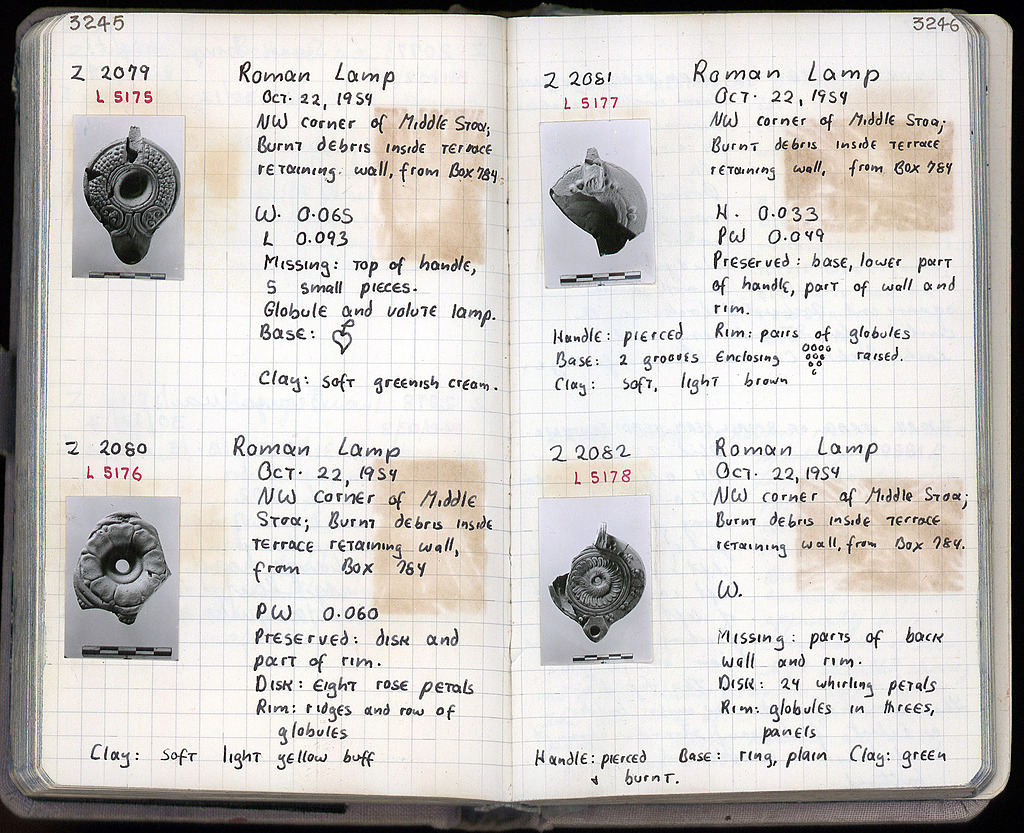 3245
Z 2079 Roman Lamp
L 5175 Oct. 22, 1954
NW corner of Middle Stoa;
Burnt debris inside terrace
retaining wall, from Box 784
W. 0.065
L 0.093
Missing: top of handle,
5 small pieces.
Globule and volute lamp.
Base:
Clay: soft greenish cream.
Z 2080 Roman Lamp
L 5176 Oct. 22, 1954
NW corner of Middle
Stoa; Burnt debris inside
terrace retaining wall,
from Box 784
PW 0.060
Preserved: disk and
part of rim.
Disk: eight rose petals
Rim: ridges and row of
globules
Clay: soft light yellow buff
3246
Z 2081 Roman Lamp
L 5177 Oct. 22, 1954
NW corner of Middle Stoa;
Burnt debris inside terrace
retaining wall, from Box 784
H. 0.033
PW 0.049
Preserved: base, lower part
of handle, part of wall and
rim.
Handle: pierced Rim: pairs of globules
Base: 2 grooves enclosing raised.
Clay: soft, light brown
Z 2082 Roman Lamp
L 5178 Oct. 22, 1954
NW corner of Middle Stoa;
Burnt debris inside terrace
retaining wall, from Box 784.
W.
Missing: parts of back
wall and rim.
Disk: 24 whirling petals
Rim: globules in threes,
panels
Handle: pierced Base: ring, plain Clay: green
burnt.